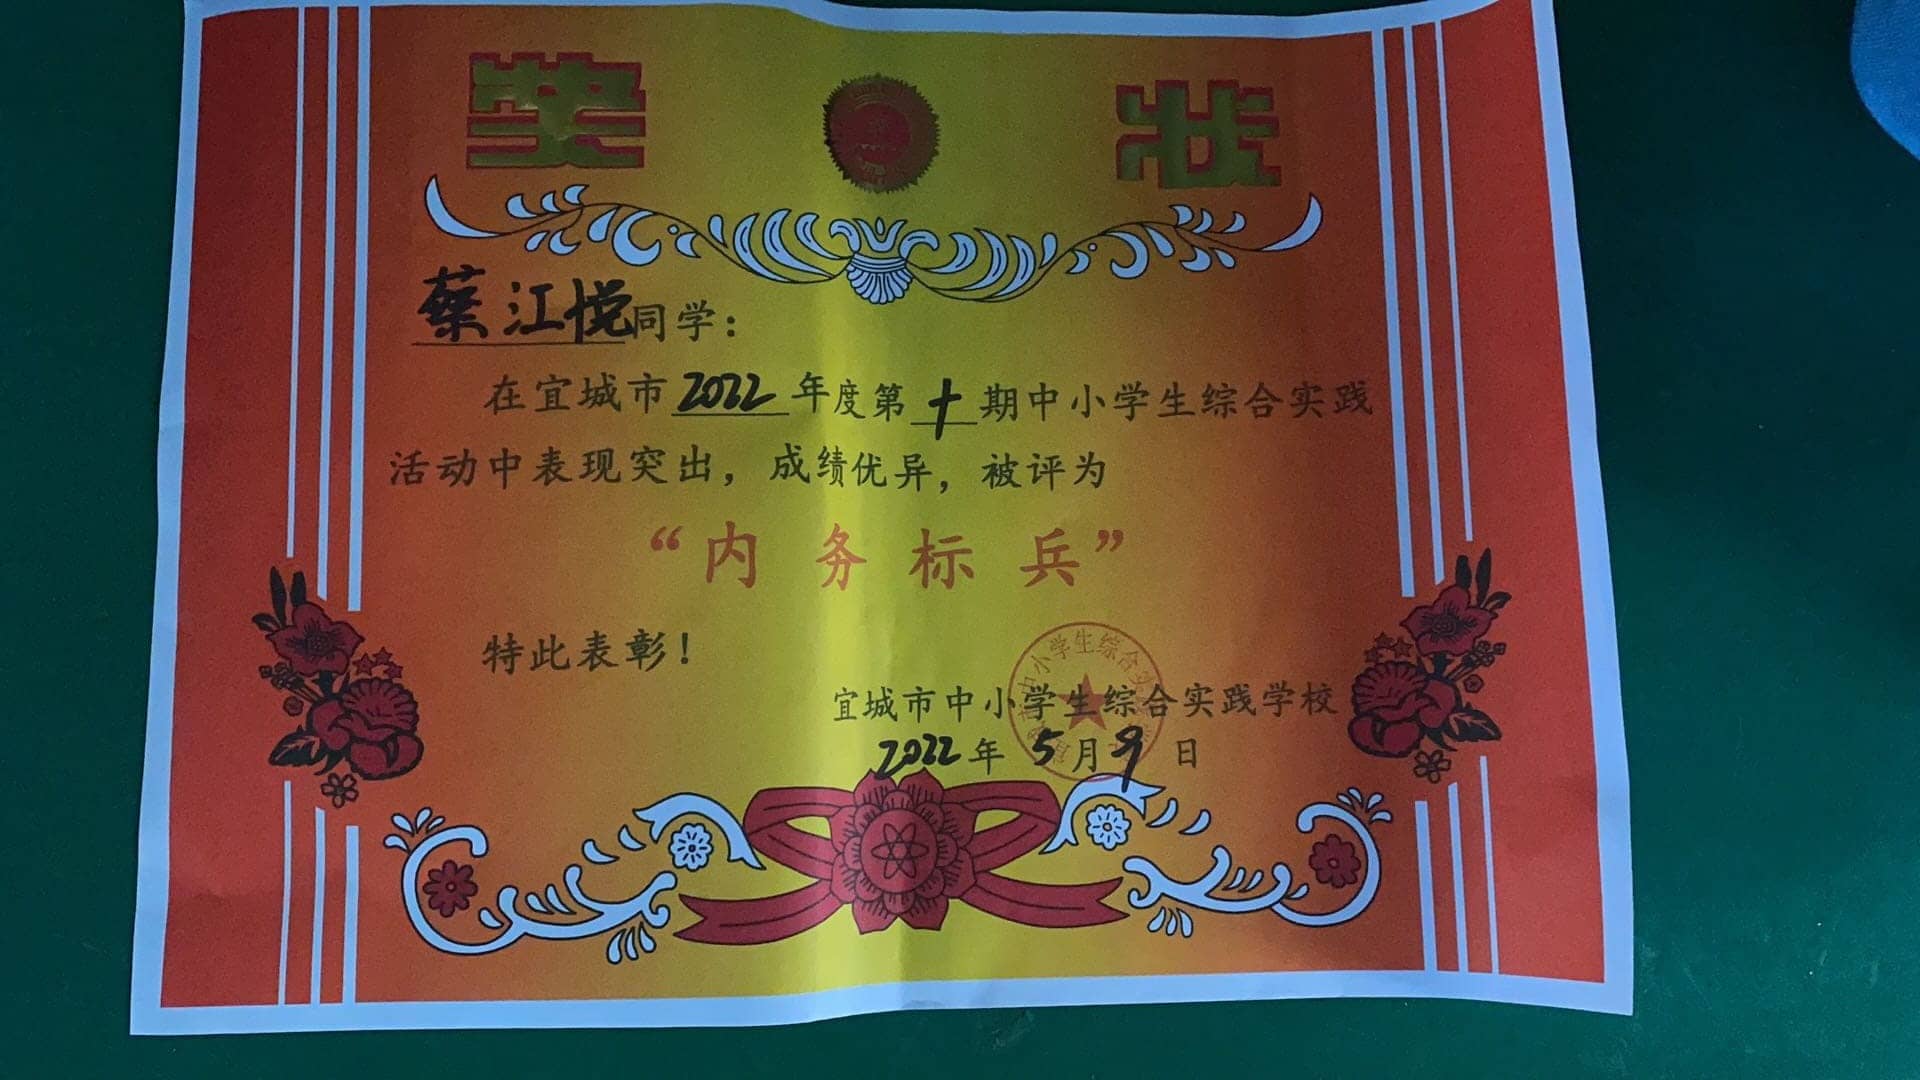 奖 状
蔡江悦同学：
在宜城市2022年度第十期中小学生综合实践
活动中表现突出，成绩优异，被评为
“内务标兵”
特此表彰！
宜城市中小学生综合实践学校
2022年5月9日